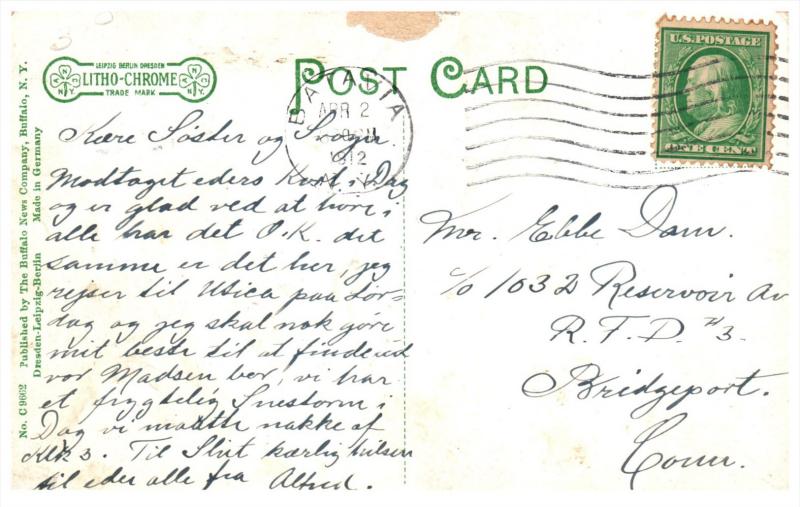 LEIPZIG BERLIN DRESDEN
LITHO-CHROME
TRADE MARK
POST CARD
U.S. POSTAGE
ONE CENT
BATAVIA
APR 2
1912
N.Y.
No. C 9662 Published by The Buffalo News Company, Buffalo, N. Y.
Dresden-Leipzig-Berlin Made in Germany
Kære Søster og Svoger
Modtaget eders Kort i Dag
og er glad ved at høre i
alle har det O.K. det
samme er det her, jeg
rejser til Utica paa Lør-
dag og jeg skal nok gøre
mit beste til at finde ud
vor Madsen bor, vi har
et frygtelig Snestorm i
Dag vi maatte nakke af
Klk 3. Til Slut kærlig hilsen
til eder alle fra Alfred.
Mr. Ebbe Dam.
c/o 1032 Reservoir Av
R.F.D. #3.
Bridgeport.
Conn.